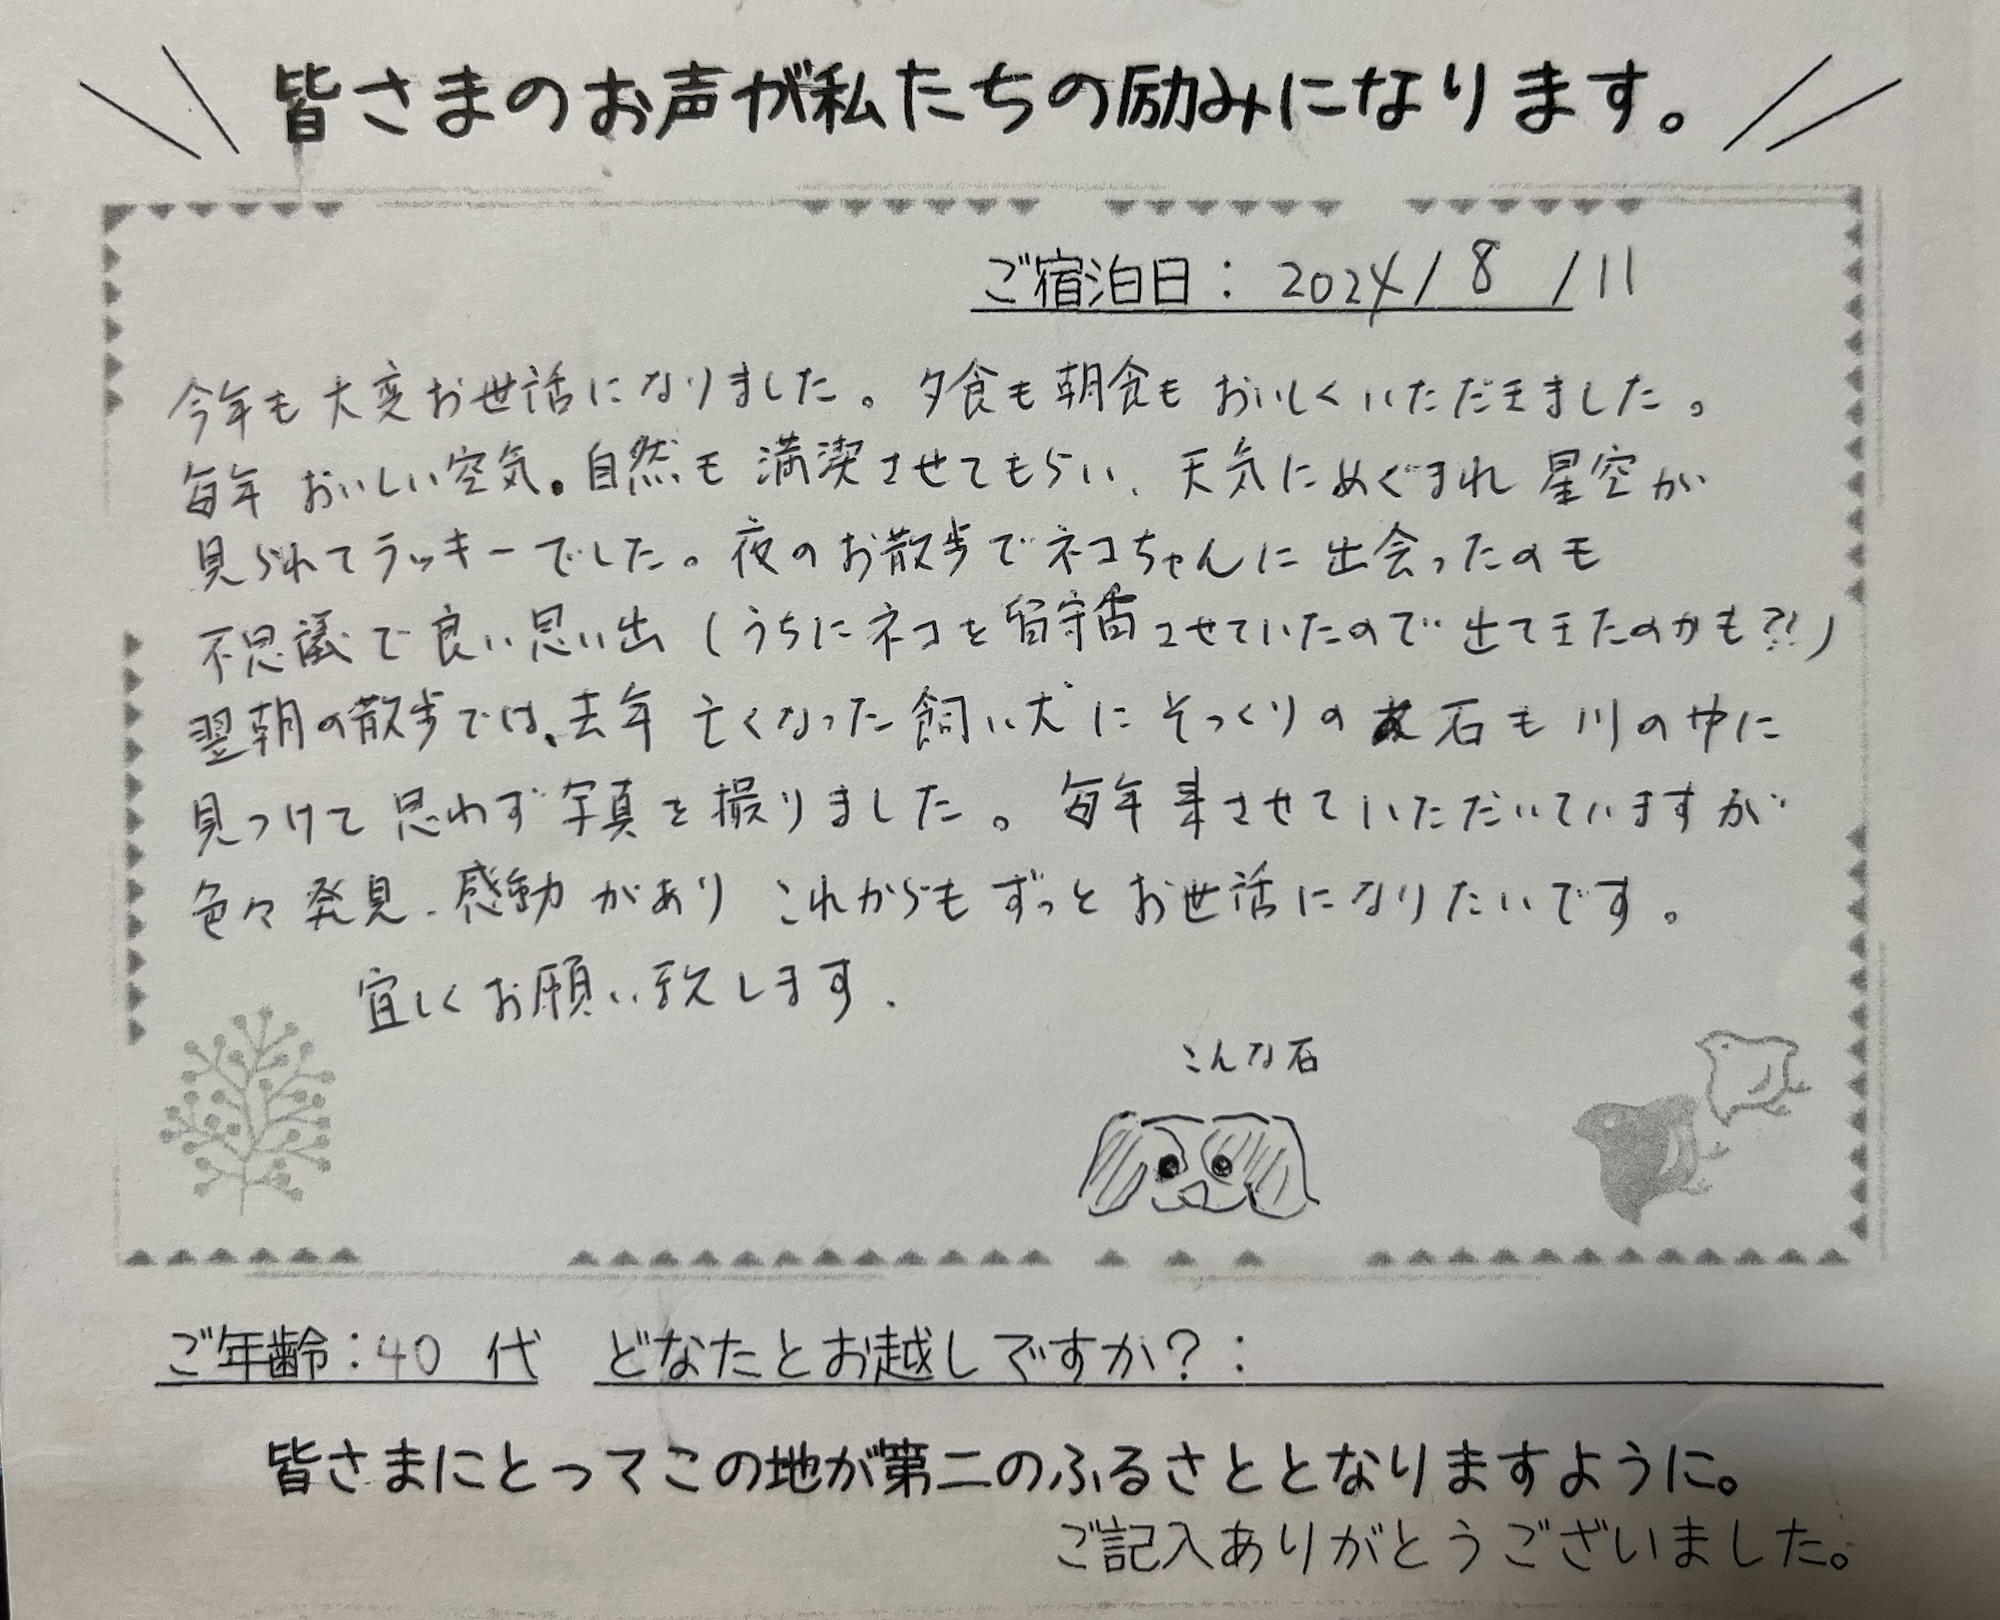 皆さまのお声が私たちの励みになります。
ご宿泊日: 2024/8/11
今年も大変お世話になりました。夕食も朝食もおいしくいただきました。
毎年おいしい空気。自然も満喫させてもらい、天気にめぐまれ星空が
見られてラッキーでした。夜のお散歩でネコちゃんに出会ったのも
不思議で良い思い出(うちにネコを留守番させていたので出てきたのかも?!)
翌朝の散歩では、去年亡くなった飼い犬にそっくりの石も川の中に
見つけて思わず写真を撮りました。毎年来させていただいていますが
色々発見、感動がありこれからもずっとお世話になりたいです。
宜しくお願い致します。
こんな石
ご年齢:40代 どなたとお越しですか?:
皆さまにとってこの地が第二のふるさととなりますように。
ご記入ありがとうございました。